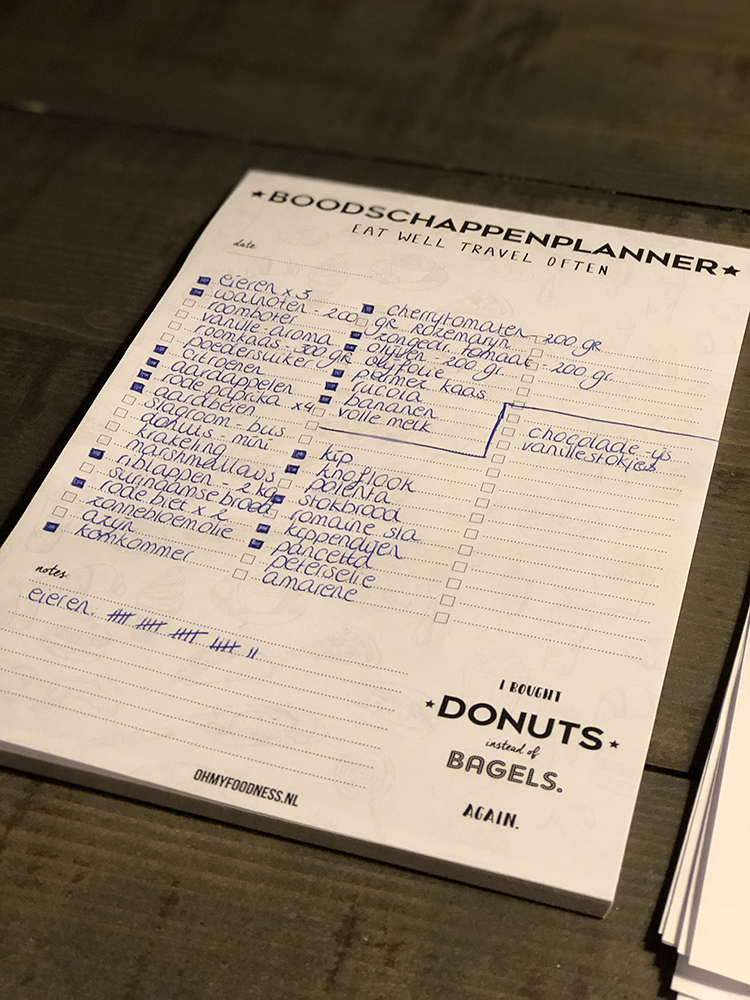 ★BOODSCHAPPENPLANNER★
EAT WELL TRAVEL OFTEN
date:
eieren x 3
walnoten - 200 gr.
roomboter
vanille-aroma
roomkaas - 300 gr
poedersuiker
citroenen
aardappelen
rode paprika x4
aardbeien
slagroom - bus
donuts - mini
krakeling
marshmallows
riblappen - 2 kg
surinaamse brood
rode biet x 2
zonnebloemolie
azijn
komkommer
cherrytomaten - 200 gr
rozemarijn
zongedr. tomaat - 200 gr.
olijven - 200 gr.
olijfolie
parmez. kaas
rucola
bananen
volle melk
kip
knoflook
polenta
stokbrood
romaine sla
kippendijen
pancetta
peterselie
amarene
chocolade-ijs
vanillestokjes
notes:
eieren: 卌 卌 卌 卌 II
I BOUGHT
★DONUTS★
instead of
BAGELS.
AGAIN.
OHMYFOODNESS.NL